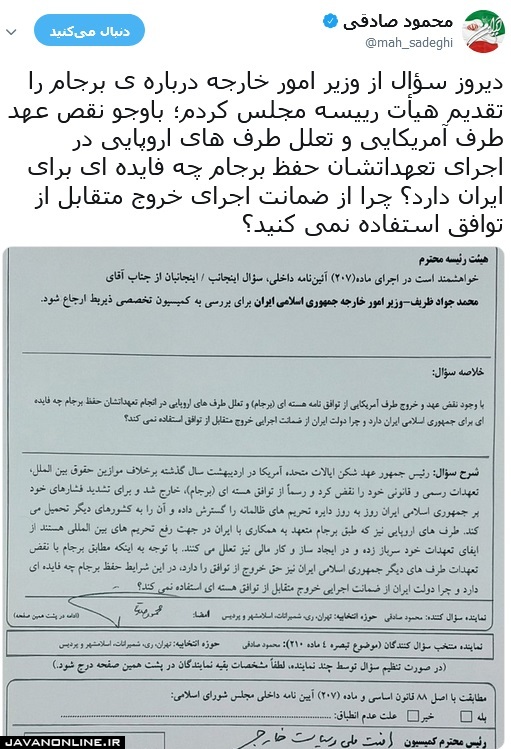 محمود صادقی
@mah_sadeghi
دنبال می‌کنید
دیروز سؤال از وزیر امور خارجه درباره ی برجام را
تقدیم هیأت رییسه مجلس کردم؛ باوجو نقص عهد
طرف آمریکایی و تعلل طرف های اروپایی در
اجرای تعهداتشان حفظ برجام چه فایده ای برای
ایران دارد؟ چرا از ضمانت اجرای خروج متقابل از
توافق استفاده نمی کنید؟
هیئت رئیسه محترم
خواهشمند است در اجرای ماده(۲۰۷) آئین‌نامه داخلی، سؤال اینجانب / اینجانبان از جناب آقای
محمد جواد ظریف-وزیر امور خارجه جمهوری اسلامی ایران برای بررسی به کمیسیون تخصصی ذیربط ارجاع شود.
خلاصه سؤال:
با وجود نقض عهد و خروج طرف آمریکایی از توافق نامه هسته ای (برجام) و تعلل طرف های اروپایی در انجام تعهداتشان حفظ برجام چه فایده
ای برای جمهوری اسلامی ایران دارد و چرا دولت ایران از ضمانت اجرایی خروج متقابل از توافق استفاده نمی کند؟
شرح سؤال: رئیس جمهور عهد شکن ایالات متحده آمریکا در اردیبهشت سال گذشته برخلاف موازین حقوق بین الملل،
تعهدات رسمی و قانونی خود را نقض کرد و رسماً از توافق هسته ای (برجام)، خارج شد و برای تشدید فشارهای خود
بر جمهوری اسلامی ایران روز به روز دایره تحریم های ظالمانه را گسترش داده و آن را به کشورهای دیگر تحمیل می
کند. طرف های اروپایی نیز که طبق برجام متعهد به همکاری با ایران در جهت رفع تحریم های بین المللی هستند از
ایفای تعهدات خود سرباز زده و در ایجاد ساز و کار مالی نیز تعلل می کنند. با توجه به اینکه مطابق برجام با نقض
تعهدات طرف های دیگر جمهوری اسلامی ایران نیز حق خروج از توافق را دارد، در این شرایط حفظ برجام چه فایده ای
دارد و چرا دولت ایران از ضمانت اجرایی خروج متقابل از توافق هسته ای استفاده نمی کند؟
نماینده سؤال کننده: محمود صادقی حوزه انتخابیه: تهران، ری، شمیرانات، اسلامشهر و پردیس امضا: (ادامه در پشت همین صفحه)
نماینده منتخب سؤال کنندگان (موضوع تبصره ۴ ماده ۲۱۰): محمود صادقی حوزه انتخابیه: تهران، ری، شمیرانات، اسلامشهر و پردیس
(در صورت تنظیم سؤال توسط چند نماینده، لطفاً مشخصات بقیه نمایندگان در پشت همین صفحه درج شود.)
مطابقت با اصل ۸۸ قانون اساسی و ماده (۲۰۷) آیین نامه داخلی مجلس شورای اسلامی:
بله خیر علت عدم انطباق:
رئیس محترم کمیسیون امنیت ملی و سیاست خارجی
JAVANONLINE.IR